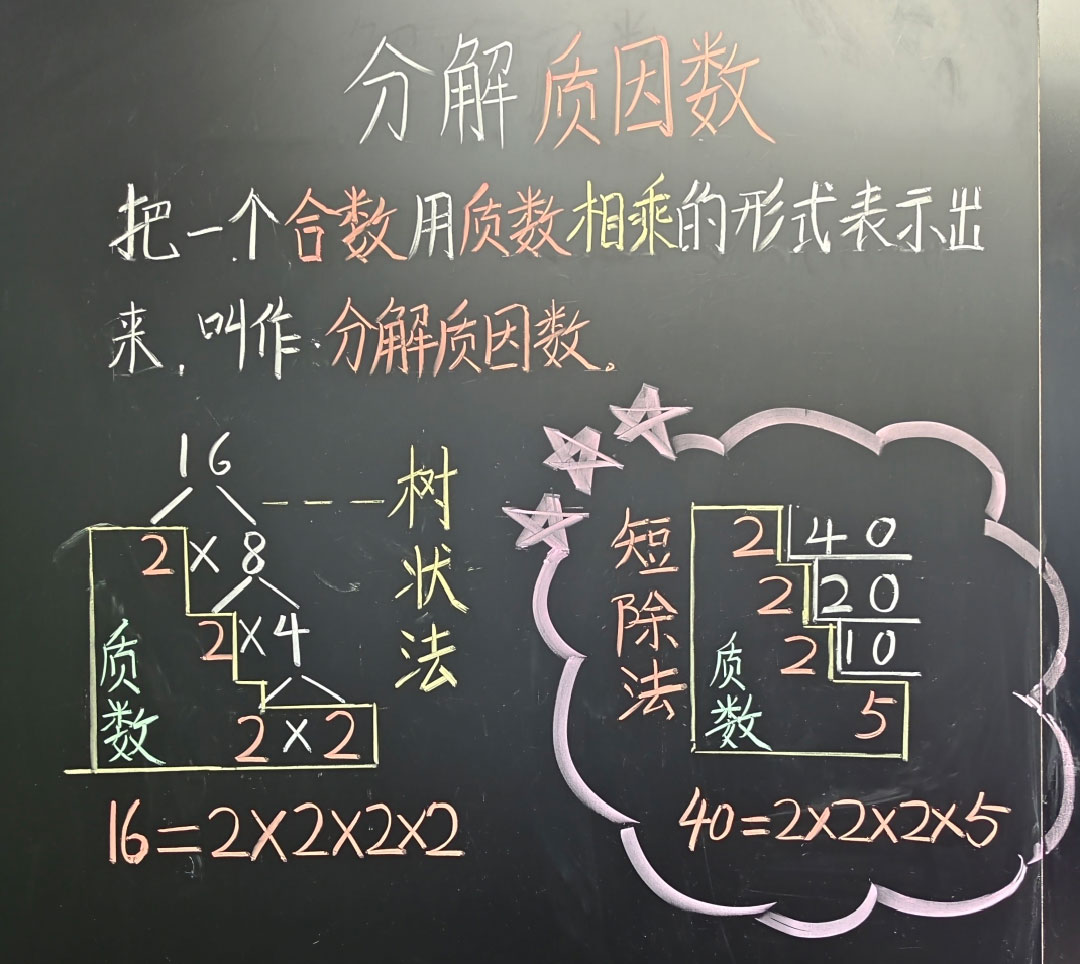 分解质因数
把一个合数用质数相乘的形式表示出
来，叫作:分解质因数。
16
2×8
2×4
2×2
质数
树状法
16=2×2×2×2
短除法
2 40
2 20
2 10
5
质数
40=2×2×2×5